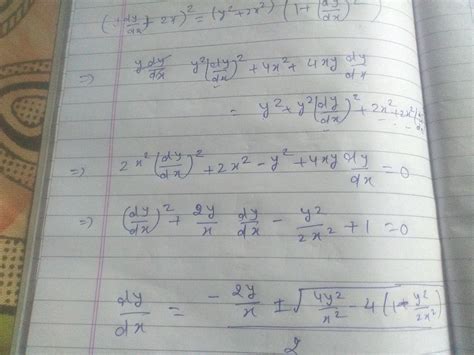 (y dy/dx + 2x)² = (y²+2x²) (1+(dy/dx)²)
⇒ y dy/dx y²(dy/dx)² + 4x² + 4xy dy/dx
= y² + y²(dy/dx)² + 2x² + 2x²(
⇒ 2x²(dy/dx)² + 2x² - y² + 4xy dy/dx = 0
⇒ (dy/dx)² + 2y/x dy/dx - y²/2x² + 1 = 0
dy/dx = -2y/x ± √4y²/x² - 4(1 - y²/2x²) / 2